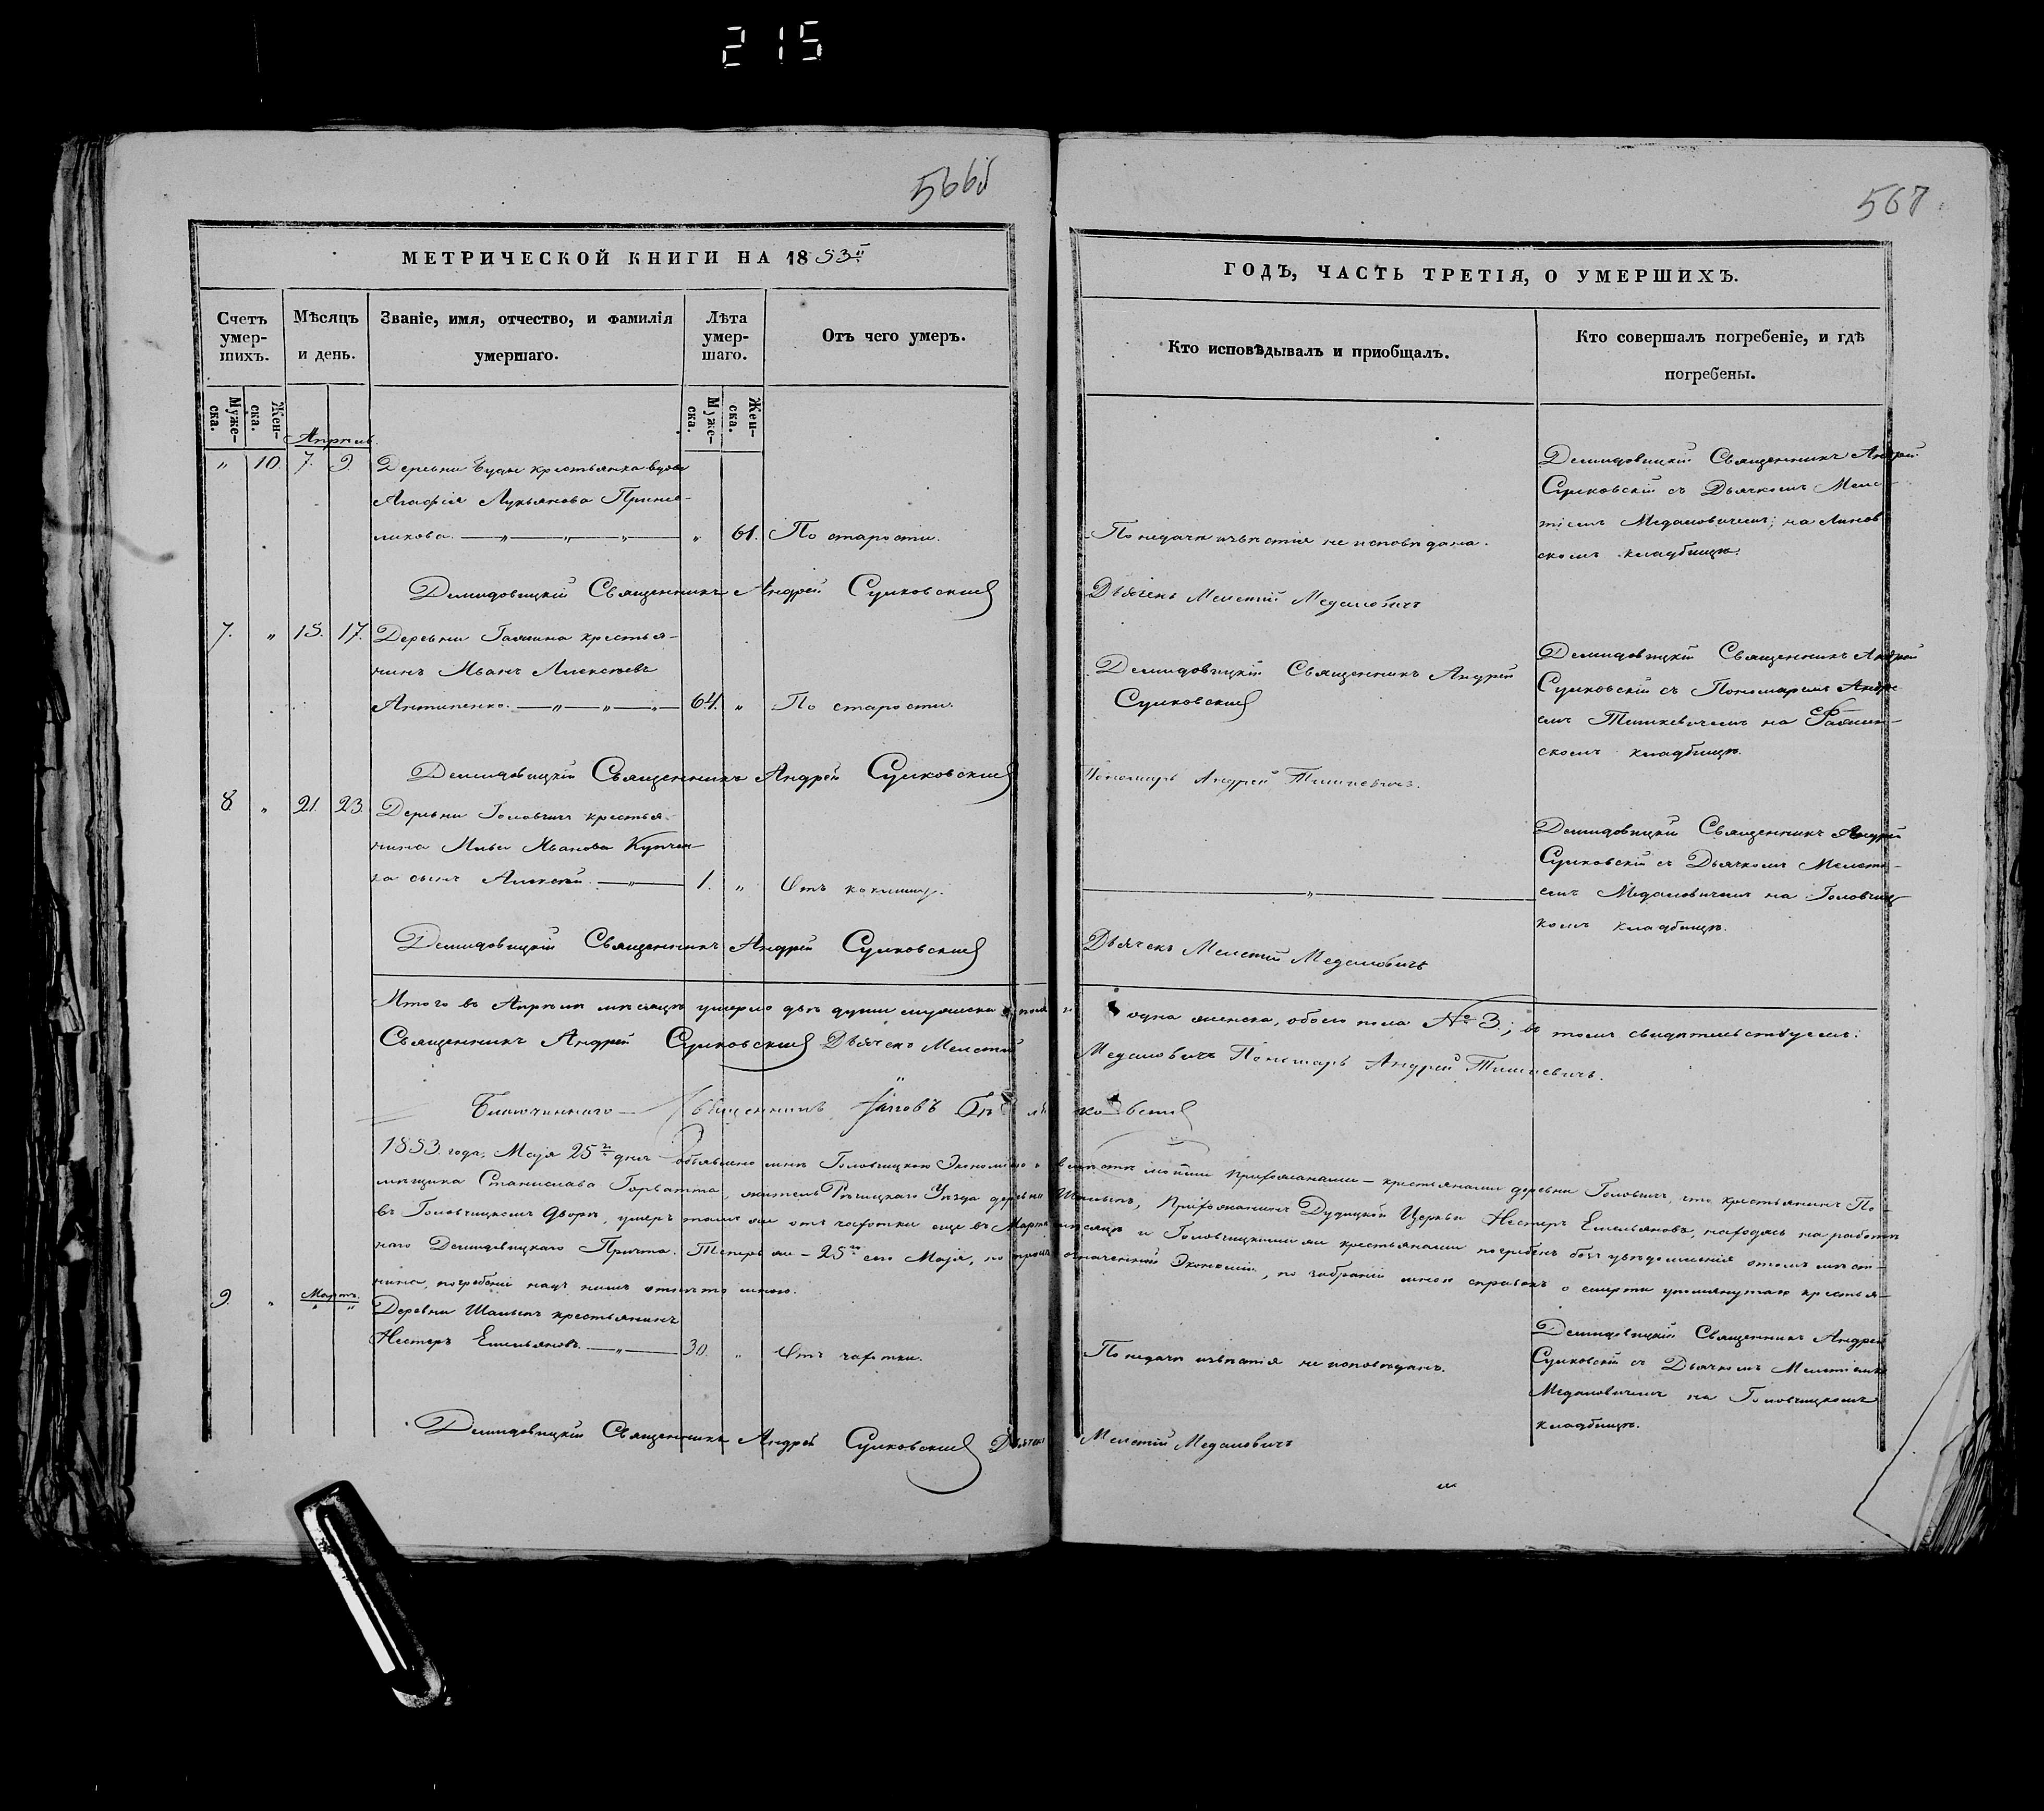 215
566б
567
МЕТРИЧЕСКОЙ КНИГИ НА 1853й
ГОДЪ, ЧАСТЬ ТРЕТІЯ, О УМЕРШИХЪ.
Счетъ умер-шихъ.
Мѣсяцъ и день.
Званіе, имя, отчество, и фамилія умершаго.
Лѣта умер-шаго.
Отъ чего умеръ.
Кто исповѣдывалъ и приобщалъ.
Кто совершалъ погребеніе, и гдѣ погребены.
Муже-ска.
Жен-ска.
Муже-ска.
Жен-ска.
Апрель.
" 10. 7. 9. Деревни крестьянка вдова
Агафія Лукьянова
" 61. По старости.
По недачи извѣстія не исповѣдана.
Демидовицкій Священникъ Андрей
Сулковскій съ Дьячкомъ Меле-
тіемъ Медаловичемъ; на
скомъ кладбищѣ.
Демидовицкій Священникъ Андрей Сулковскій
Дьячекъ Мелетій Медаловичъ
7. " 15. 17. Деревни крестья-
нинъ Иванъ Алексѣевъ
Антипенко. 64. " По старости.
Демидовицкій Священникъ Андрей
Сулковскій
Демидовицкій Священникъ Андрей
Сулковскій съ Пономаремъ Андре-
емъ Тишкевичемъ на
скомъ кладбищѣ.
Демидовицкій Священникъ Андрей Сулковскій
Пономарь Андрей Тишкевичъ.
8. " 21. 23. Деревни Головчицъ крестья-
нина Ильи Иванова Купчен-
ка сынъ Алексѣй. 1. " Отъ коклюшу.
Демидовицкій Священникъ Андрей
Сулковскій съ Дьячкомъ Мелеті-
емъ Медаловичемъ на Головчиц-
комъ кладбищѣ.
Демидовицкій Священникъ Андрей Сулковскій
Дьячекъ Мелетій Медаловичъ
Итого въ Апрѣлѣ мѣсяцѣ умерло двѣ души мужеска пола и одна женска, обоего пола № 3.; въ томъ свидѣтельствуемъ:
Священникъ Андрей Сулковскій Дьячекъ Мелетій Медаловичъ Пономарь Андрей Тишкевичъ.
Благочинный Священникъ Іаковъ
1853 года, Маія 25го дня объявлено мнѣ Головчицкою Экономіею вмѣстѣ моими прихожанами – крестьянами деревни Головчицъ, что крестьянинъ По-
мѣщика Станислава Горватта, житель Рѣчицкаго Уѣзда деревни прихожанинъ Дудицкой Церкви Нестеръ Емельяновъ, находясь на работѣ
въ Головчицкомъ дворѣ, умеръ тамъ же отъ чахотки еще въ Мартѣ мѣсяцѣ и Головчицкими же крестьянами погребенъ безъ увѣдомленія о томъ мѣст-
наго Демидовицкаго Причта. Теперь же – 25го сего Маія, по означенной Экономіи, по забраніи мною справокъ о смерти упомянутаго крестья-
нина, погребеніе надъ нимъ отпѣто мною.
9. " Мартъ. " "
Деревни крестьянинъ
Нестеръ Емельяновъ. 30. " Отъ чахотки.
По недачи извѣстія не исповѣданъ.
Демидовицкій Священникъ Андрей
Сулковскій съ Дьячкомъ Мелетіемъ
Медаловичемъ на Головчицкомъ
кладбищѣ.
Демидовицкій Священникъ Андрей Сулковскій Дьячекъ Мелетій Медаловичъ